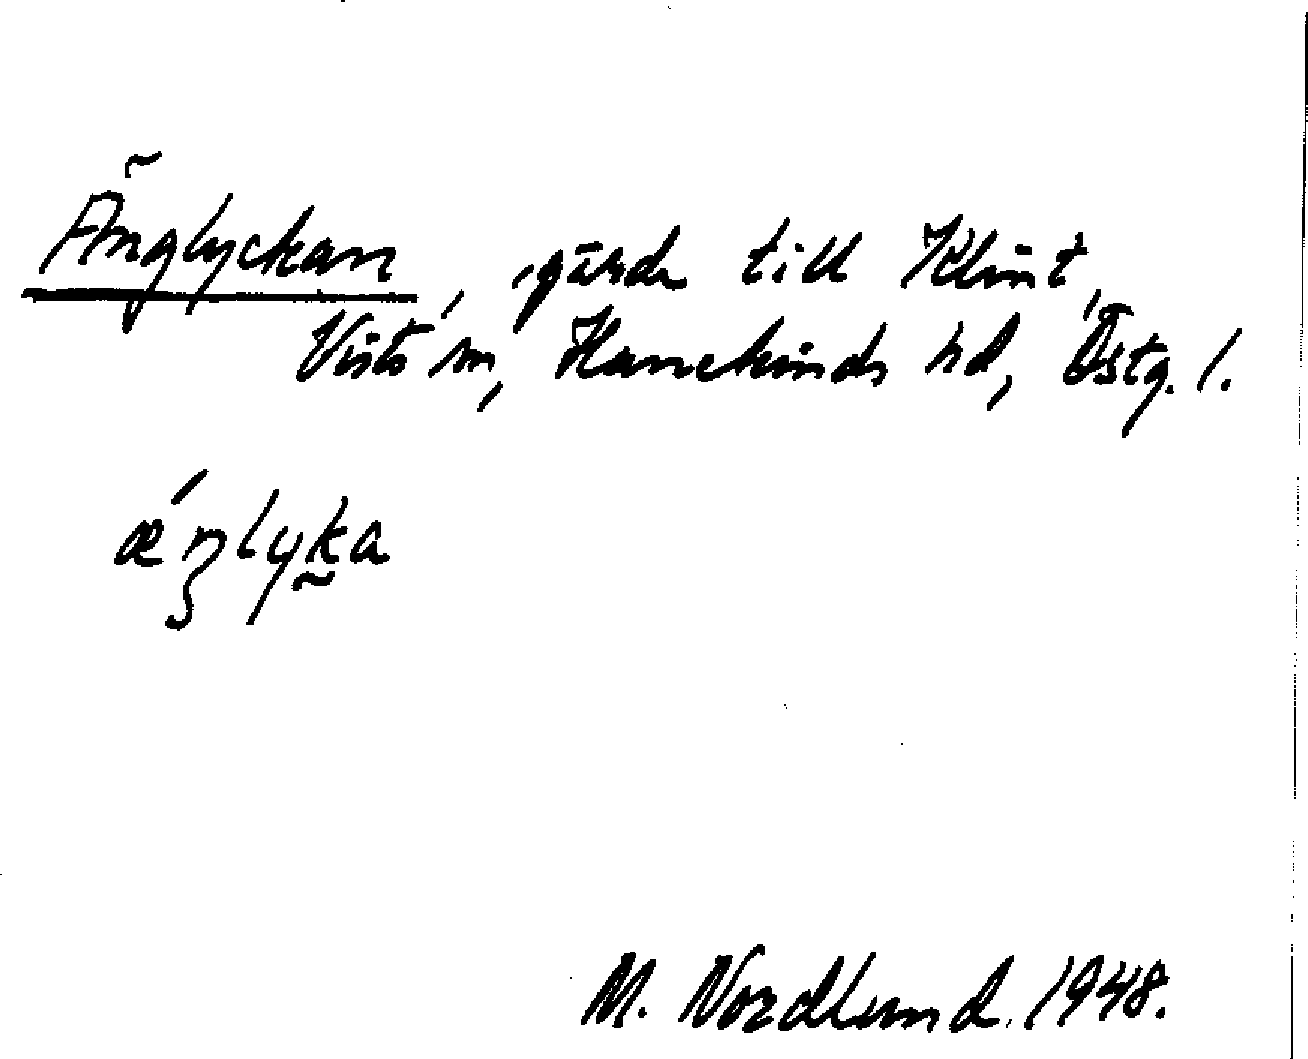 Änglyckan, gärde till Klint,
Vists sn, Hanekinds hd, Östg. l.
ǽŋlyk̰a
M. Nordlund. 1948.